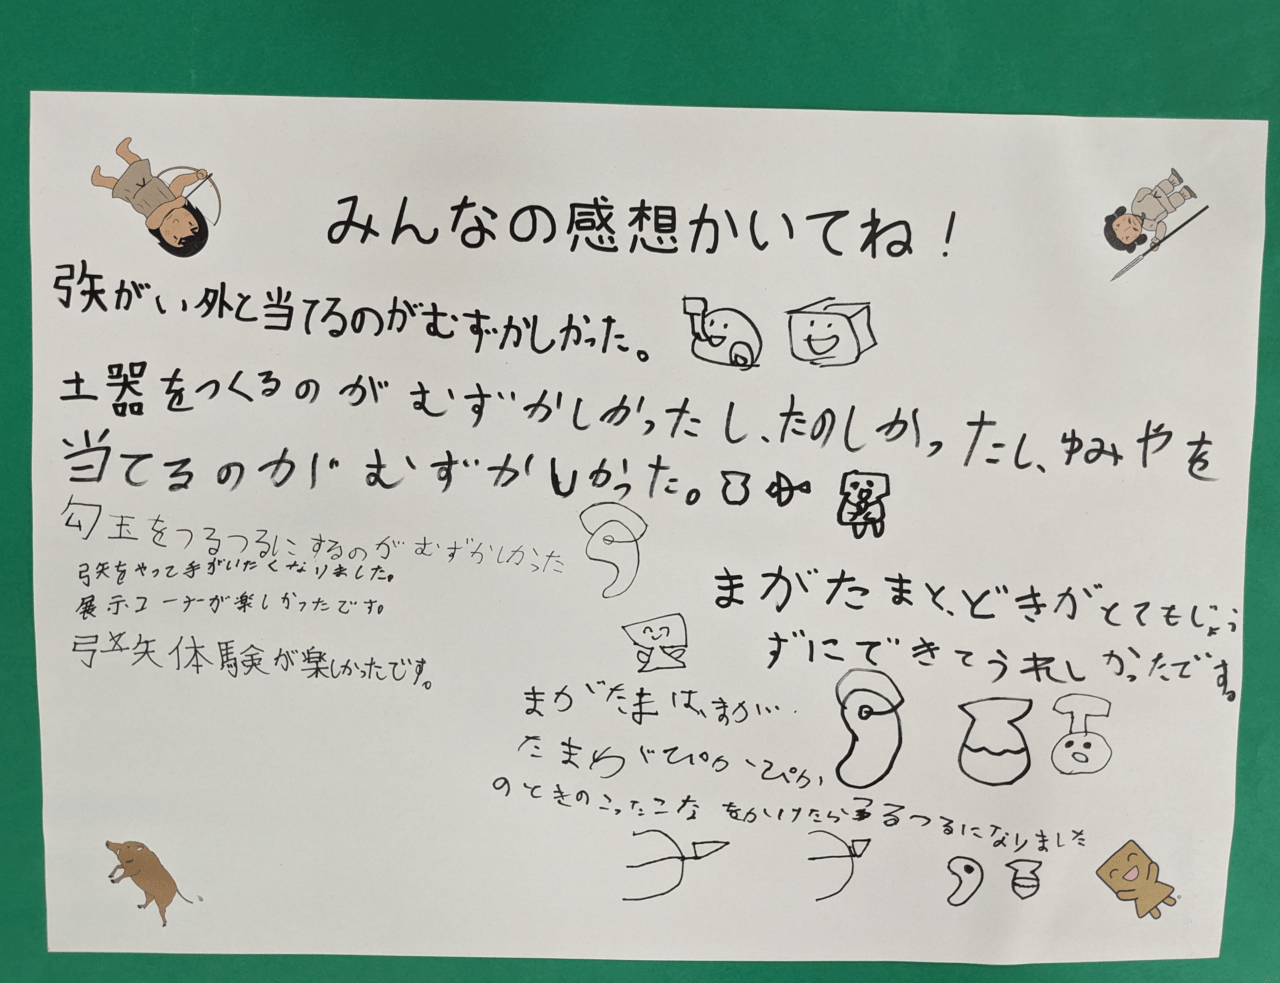 みんなの感想かいてね！
弓矢がい外と当てるのがむずかしかった。
土器をつくるのがむずかしかったし、たのしかったし、ゆみやを
当てるのがむずかしかった。
勾玉をつるつるにするのがむずかしかった
弓矢をやって手がいたくなりました。
展示コーナーが楽しかったです。
弓矢体験が楽しかったです。
まがたまと、どきがとてもじょう
ずにできてうれしかったです。
まがたまは、まが
たまわがぴかぴか
のときのこったこなをかけたらつるつるになりました